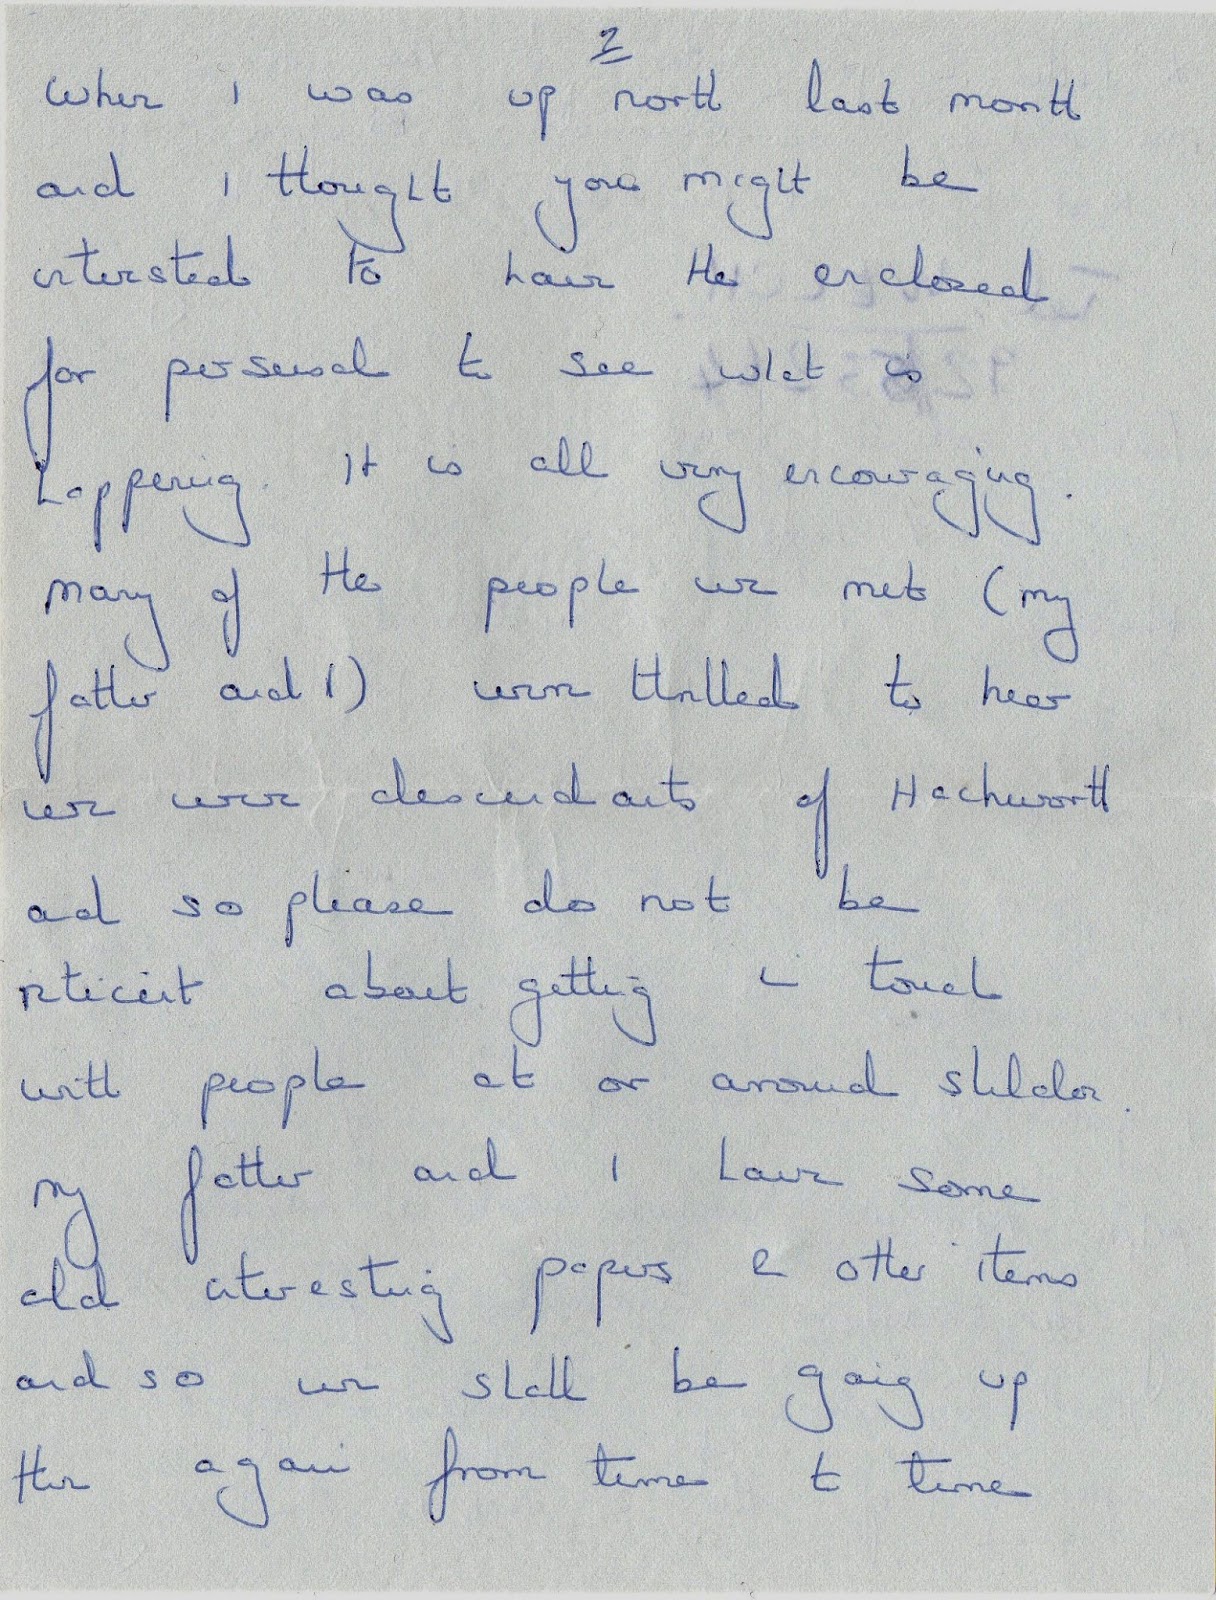 2
when I was up north last month
and I thought you might be
interested to have the enclosed
for perusal to see what is
happening. It is all very encouraging.
Many of the people we met (my
father and I) were thrilled to hear
we were descendants of Hackworth
and so please do not be
reticent about getting in touch
with people at or around Shildon.
My father and I have some
old interesting papers & other items
and so we shall be going up
there again from time to time